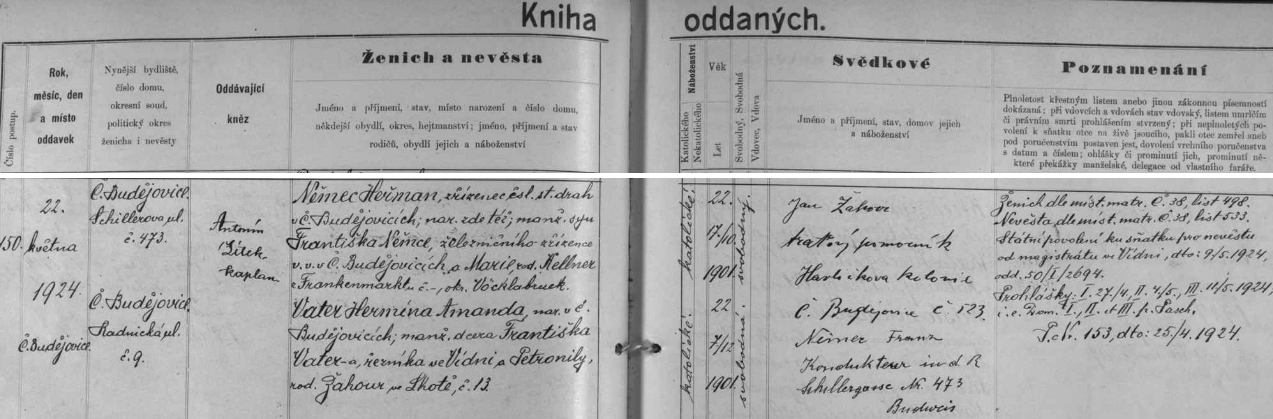 Kniha oddaných.
Číslo postup.
Rok,
měsíc, den
a místo
oddavek
Nynější bydliště,
číslo domu,
okresní soud,
politický okres
ženicha i nevěsty
Oddávající
kněz
Ženich a nevěsta
Jméno a příjmení, stav, místo narození a číslo domu,
někdejší obydlí, okres, hejtmanství; jméno, příjmení a stav
rodičů, obydlí jejich a náboženství
Náboženství
Katolického
Nekatolického
Věk
Let
Svobodný, Svobodná
Vdovec, Vdova
Svědkové
Jméno a příjmení, stav, domov jejich
a náboženství
Poznamenání
Plnoletost křestným listem anebo jinou zákonnou písemností
dokázaná; při vdovcích a vdovách stav vdovský, listem umrlčím
či právním smrti prohlášením stvrzený; při neplnoletých po-
volení k sňatku otce na živě jsoucího, pakli otec zemřel aneb
pod poručenstvím postaven jest, dovolení vrchního poručenstva
s datum a číslem; ohlášky či prominutí jich, prominutí ně-
které překážky manželské, delegace od vlastního faráře.
150.
22.
května
1924.
Č. Budějovice.
Č. Budějovice.
Schillerova ul.
č. 473.
Č. Budějovice.
Radnická ul.
č. 9.
Antonín
kaplan
Němec Heřman, zřízenec čsl. st. drah
v Č. Budějovicích; nar. zde též; manž. syn
Františka Němce, železničního zřízence
v. v. v Č. Budějovicích, a Marie, rod. Kellner
z Frankenmarktu č. –, okr. Vöcklabruck.
Vater Hermina Amanda, nar. v Č.
Budějovicích; manž. dcera Františka
Vater-a, řezníka ve Vídni a Petronily,
rod. Žahour, ve Lhotě, č. 13.
katolické!
22.
17/10.
1901.
svobodný
katolické!
22
7/12.
1901.
svobodná
Jan Žahour
traťový pomocník
Havlíkova kolonie
Č. Budějovice č. 523.
Němec Franz
Kondukteur in d R
Schillergasse Nr. 473
Budweis
Ženich dle míst. matr. Č. 38, list 498.
Nevěsta, dle míst. matr. Č. 38, list 533.
Státní povolení ku sňatku pro nevěstu
od magistrátu ve Vídni, dto: 9/5. 1924,
odd. 50/I/2694.
Prohlášky: I. 27/4, II. 4/5, III. 11/5. 1924,
i. e. Dom. I., II. et III. p. Pasch.
P. Nr. 153, dto: 25/4. 1924.